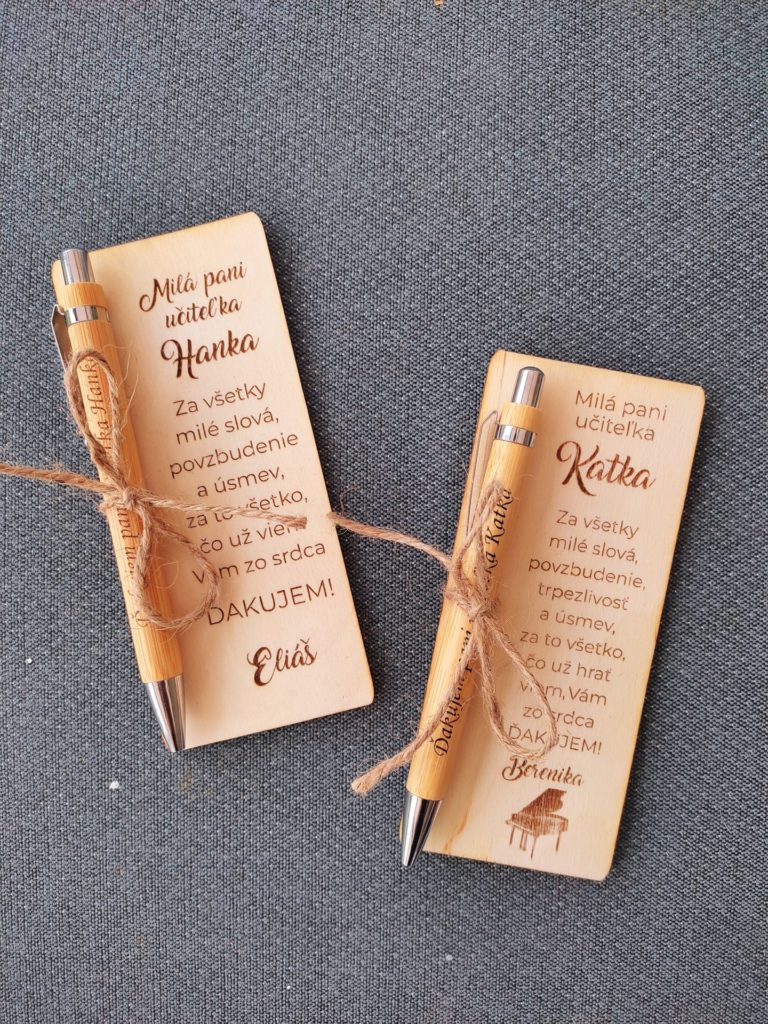 Milá pani
učiteľka
Hanka
Za všetky
milé slová,
povzbudenie
a úsmev,
za to všetko,
čo už viem
Vám zo srdca
ĎAKUJEM!
Eliáš
Hanka
Milá pani
učiteľka
Katka
Za všetky
milé slová,
povzbudenie,
trpezlivosť
a úsmev,
za to všetko,
čo už hrať
viem, Vám
zo srdca
ĎAKUJEM!
Berenika
Ďakujem pani Katka